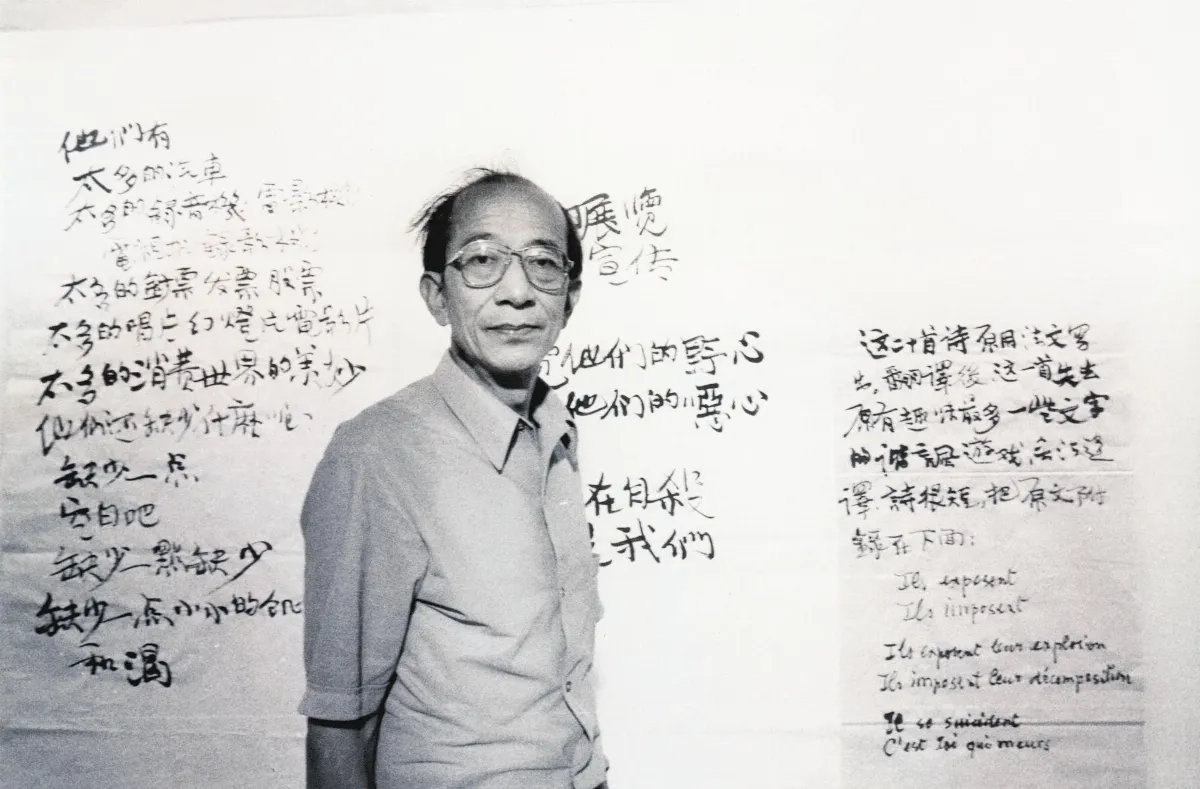 他們有
太多的汽車
太多的録音機 電影机
電視机 録影机
太多的鈔票 发票 股票
太多的唱片 幻燈片 電影片
太多的消費世界的美妙
他們还缺少什麽呢
缺少一点
空白吧
缺少一點缺少
缺少一点小小的飢
和渴
展覽
宣传
他们的野心
他们的惡心
在自殺
我們
这二十首诗原用法文写
出,翻譯後,这一首失去
原有趣味最多,一些文字
的諧音遊戲,無法迻
譯,詩很短,把原文附
錄在下面:
Ils exposent
Ils imposent
Ils exposent leur explosion
Ils imposent leur décomposition
Il se suicident
C'est toi qui meurs